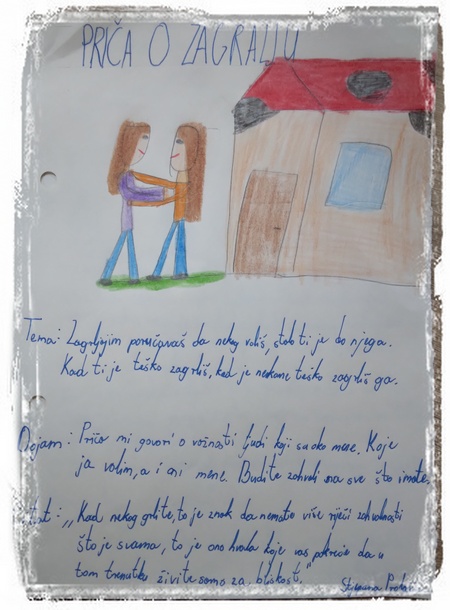 PRIČA O ZAGRLJAJU
Tema: Zagrljajem poručavaš da nekog voliš, stalo ti je do njega.
Kad ti je teško zagrliš, kad je nekome teško zagrliš ga.
Dojam: Priča mi govori o važnosti ljudi koji su oko mene. Koje
ja volim, a i oni mene. Budite zahvalni na sve što imate.
"Kad nekog grlite, to je znak da nemate više riječi zahvalnosti
što je s vama, to je ono hvala koje vas pokreće da u
tom trenutku živite samo za bliskost."